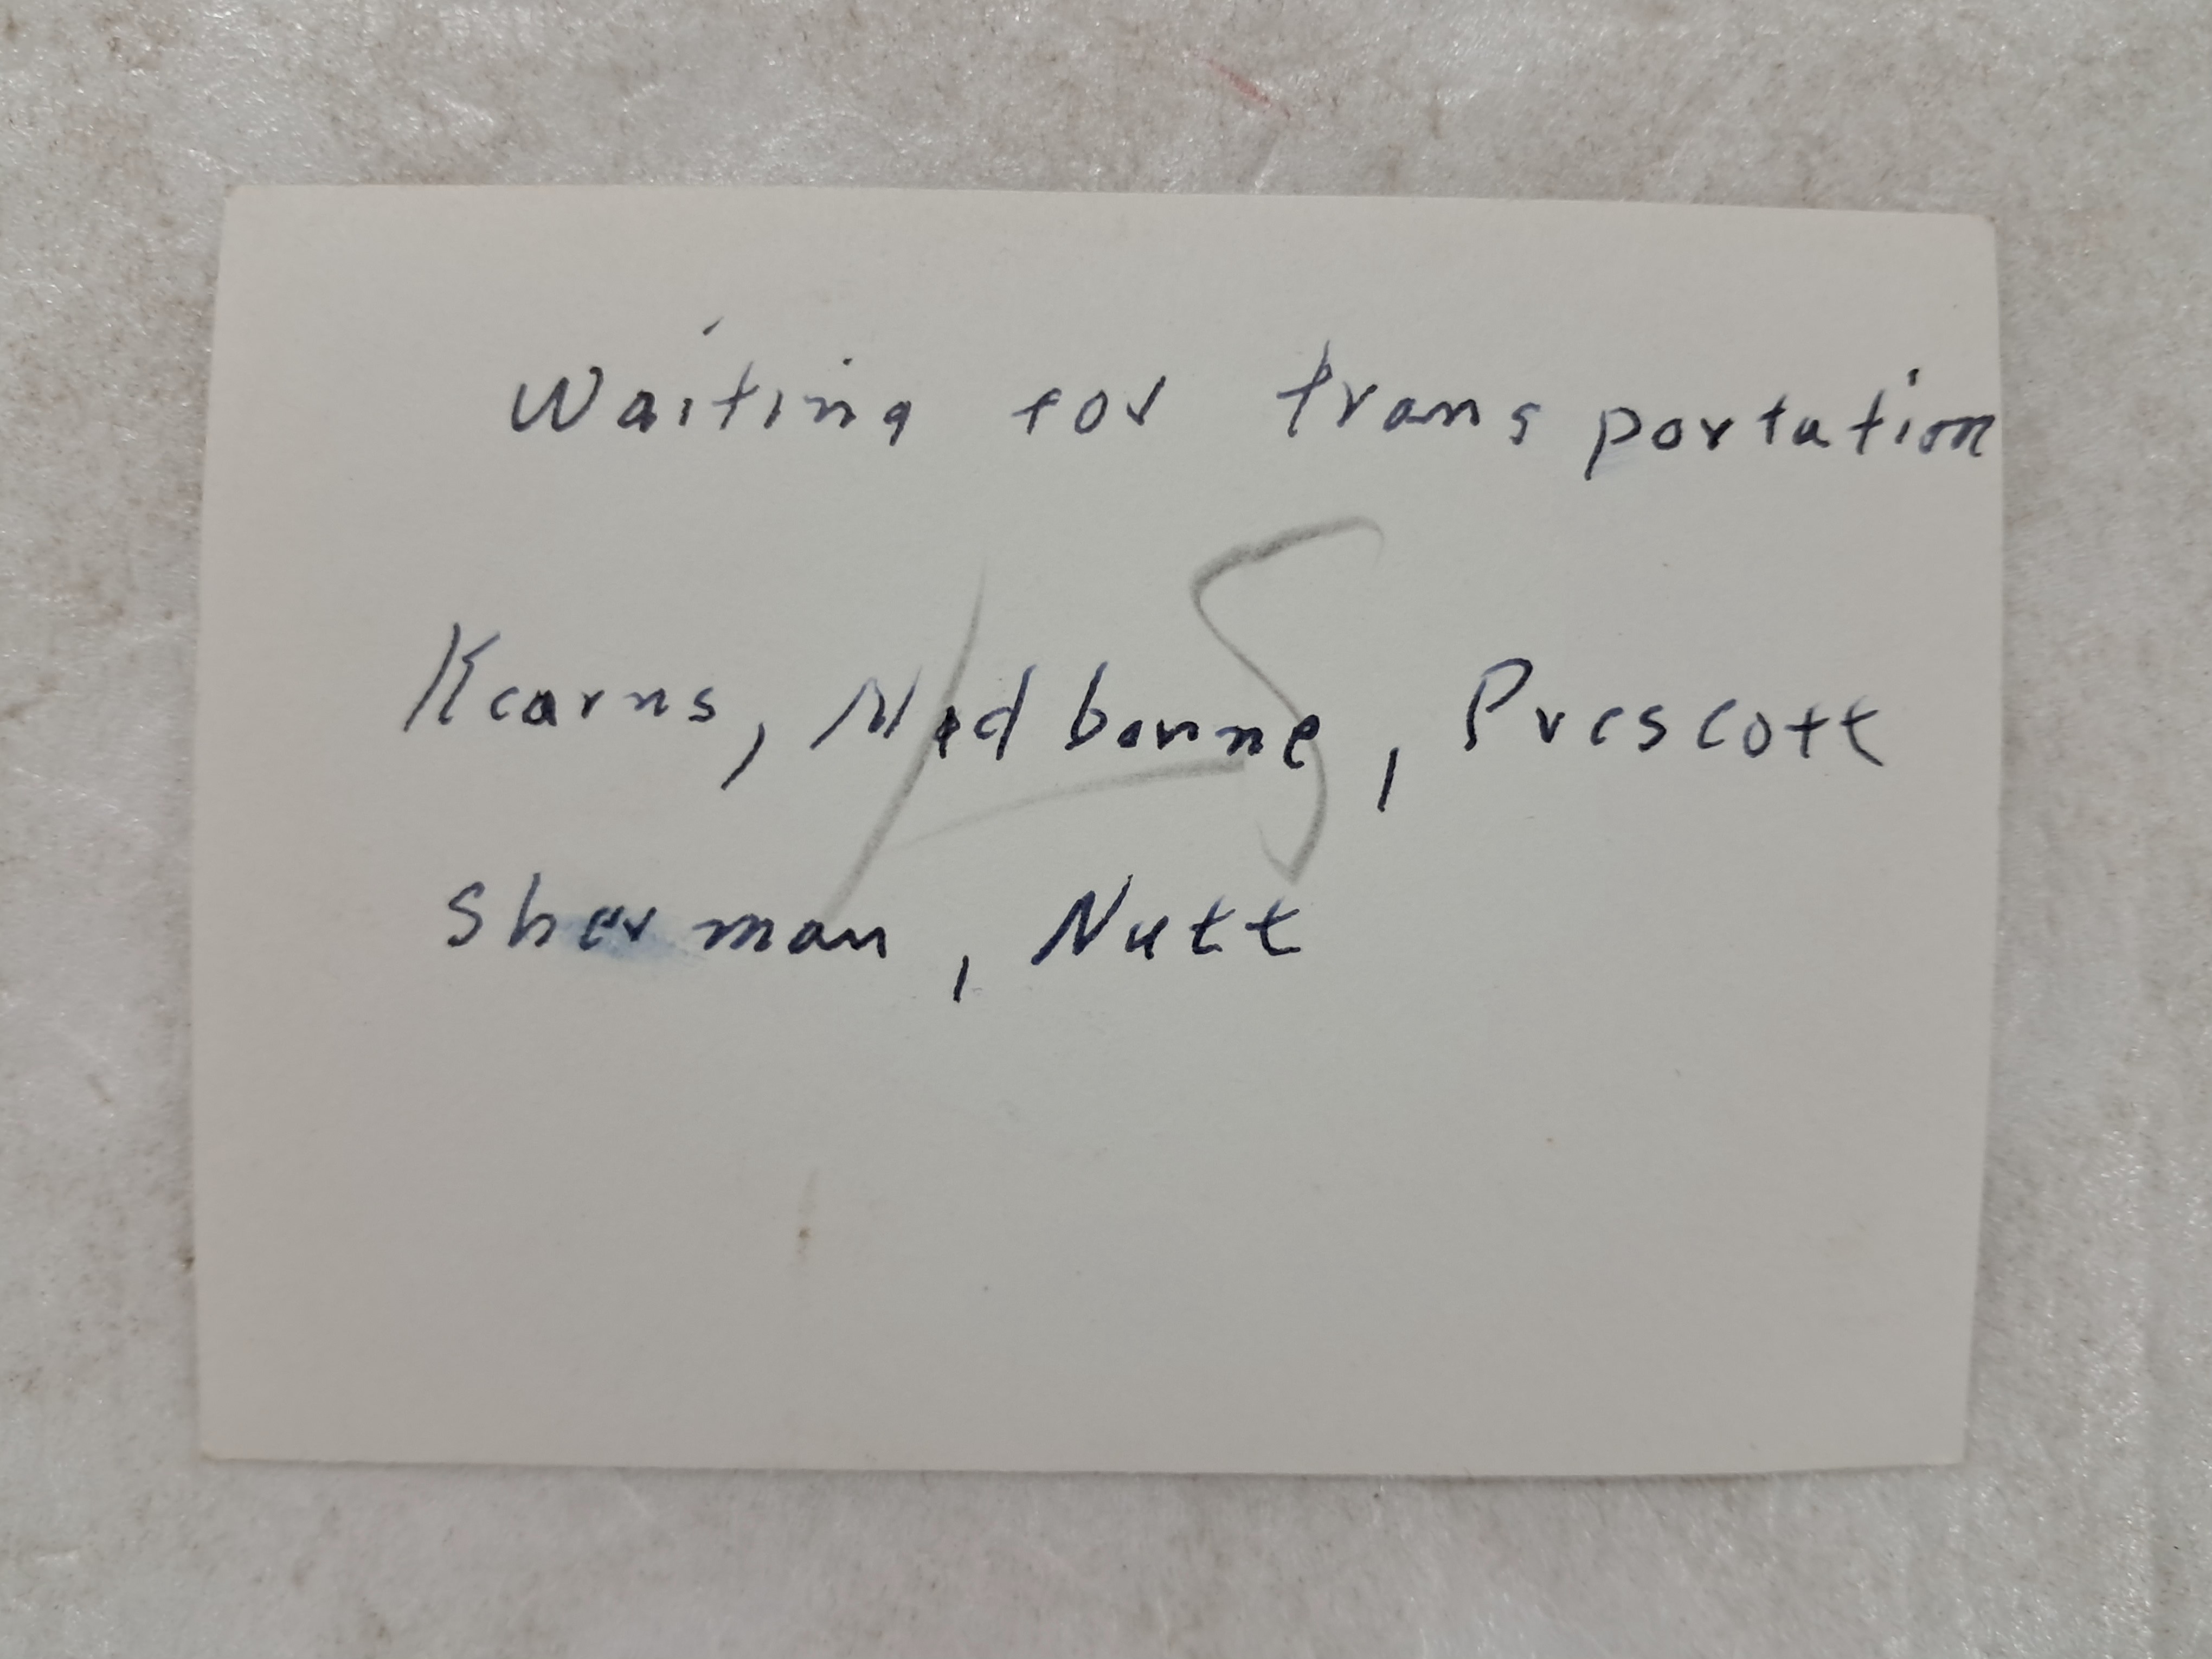 Waiting for transportation
Kearns, Medbourne, Prescott
Sherman, Nutt